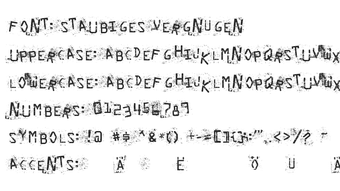 FONT: STAUBIGES VERGNUGEN
UPPERCASE: ABCDEFGHIJKLMNOPQRSTUVWX
LOWERCASE: ABCDEFGHIJKLMNOPQRSTUVWX
NUMBERS: 0123456789
SYMBOLS: !@ #$ ^&*() +-=[]{}:;"',.<>/?
ACCENTS: A E O U A